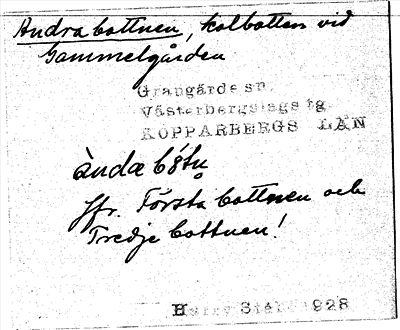 Andra bottnen, kolbotten vid
Gammelgården
Grangärde sn.
Västerbergslags tg.
KOPPARBERGS LÄN
Jfr. Första bottnen och
Tredje bottnen!
1928